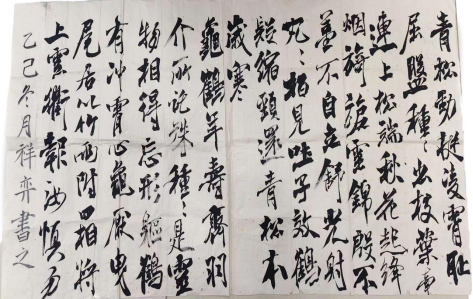 青松勁挺凌霄恥
屈盤種々出枝葉牽
連上松端秋花起絳
烟旖旎雲錦殷不
羞不自立舒光射
丸々柏見吐子效鶴
疑縮頸還青松本
歲寒
龜鶴年壽齊羽
介所託殊種々是靈
物相得忘形軀鶴
有沖霄心龜厭曳
尾居以竹兩附口相將
上雲衢報汝慎勿
乙巳冬月祥弈書之